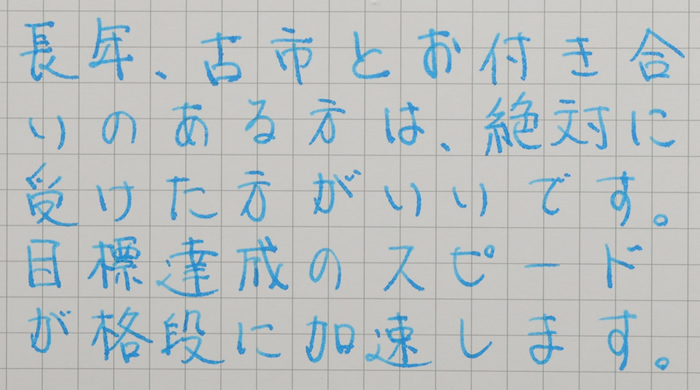 長年、古市とお付き合
いのある方は、絶対に
受けた方がいいです。
目標達成のスピード
が格段に加速します。